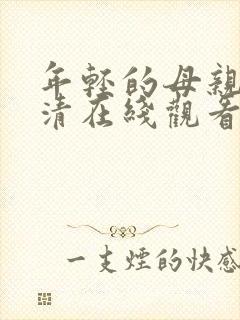 年轻的母親
清在綫觀看
一支煙的快感